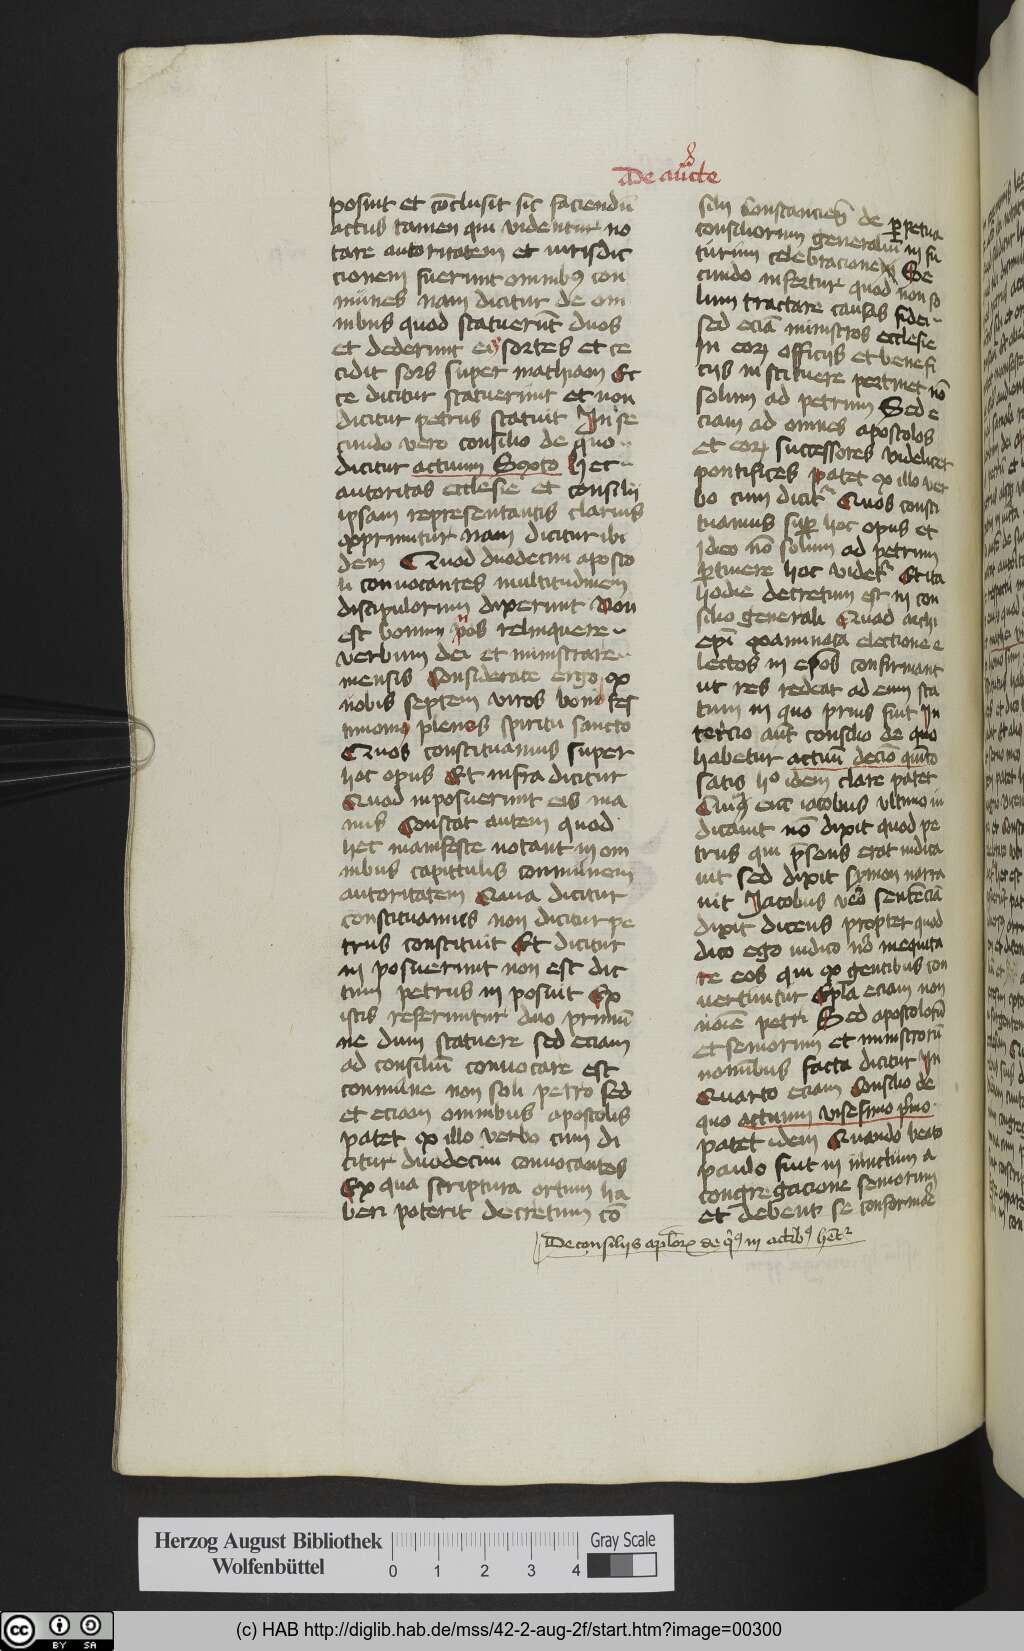 De au͞cte
posuit et co͞clusit sic faciendu͞
actus tamen qui videntur no
tare autoritatem et iurisdic
cionem fuerunt omnibꝰ con
munes nam dicitur de om
nibus quod statuerūt duos
et dederunt eis sortes et ce
cidit sors super mathiam Ec
ce dicitur statuerunt et non
dicitur petrus statuit In se
cundo vero consilio de quo
dicitur actuum Sexto hec
autoritas ecclesie et consilii
ipsam representantis clarius
exprimitur nam dicitur ibi
dem Quod duodecim aposto
li convocantes multitudinem
discipulorum dixerunt Non
est bonum nos relinquere
verbum dei et ministrare
mensis Considerate ergo ex
nobis septem viros boni tes
timonij plenos spiritu sancto
Quos constituamus super
hoc opus Et infra dicitur
Quod inposuerunt eis ma
nus Constat autem quod
hec manifeste notant in om
nibus capittulis communem
autoritatem Quia dicitur
constituamus non dicitur pe
trus constituit Et dicitur
in posuerunt non est dic
tum petrus in posuit Ex
istis referuntur duo primu͞
ne dum statuere sed eciam
ad consiliu͞ convocare est
commune non soli petro sed
et eciam omnibus apostolis
patet ex illo verbo cum di
citur duodecim convocantes
Ex qua scriptura ortum ha
beri poterit decretum co͞
silii Constancien͞ de ꝑpetua
consiliorum generaliu͞ in fu
turum celebracione Se
cundo infertur quod non so
lum tractare causas fidei
sed ecia͞ ministros ecclesie
In eoꝝ officiis et benefi
ciis in stituere pertinet no͞
solum ad petrum Sed e
ciam ad omnes apostolos
et eoꝝ successores videlicet
pontifices patet ex illo ver
bo cum dicitᷣ Quos consti
tuamus suꝑ hoc opus et
Ideo no͞ solum ad petrum
ꝑtinere hoc videtᷣ Et ita
hodie decretum est in con
silio generali Quod archi
epi͞ examinata electione e
lectos in ep͞os confirmant
ut res redeat ad eum sta
tum in quo prius fuit In
tercio aut͞ consilio de quo
habetur actuu͞ decimo qui͞to
satis hͦ idem clare patet
Cu͞qꝫ em͞ iacobus ultimo iu
dicauit no͞ dixit quod pe
trus qui p͞sens erat iudica
uit sed dixit symon narra
uit Jacobus ve͞o sente͞cia͞
dixit dicens propter quod
dico ego iudico no͞ inquieta
re eos qui ex gentibus con
vertuntur Ep͞la eciam non
noi͞e petri Sed apostoloru͞
et seniorum et ministroru͞
nominibus facta dicitur In
Quarto eciam Consilio de
quo actuum vicesimo p͞mo
patet idem Quando beato
paulo fuit in iunctum a
congregacione seniorum
et debent se conformare
De consiliis apl͞oꝝ de qͥbꝰ in actibꝰ he͞tᷣ
Herzog August Bibliothek
Wolfenbüttel
0 1 2 3 4
Gray Scale
cc BY SA
(c) HAB http://diglib.hab.de/mss/42-2-aug-2f/start.htm?image=00300